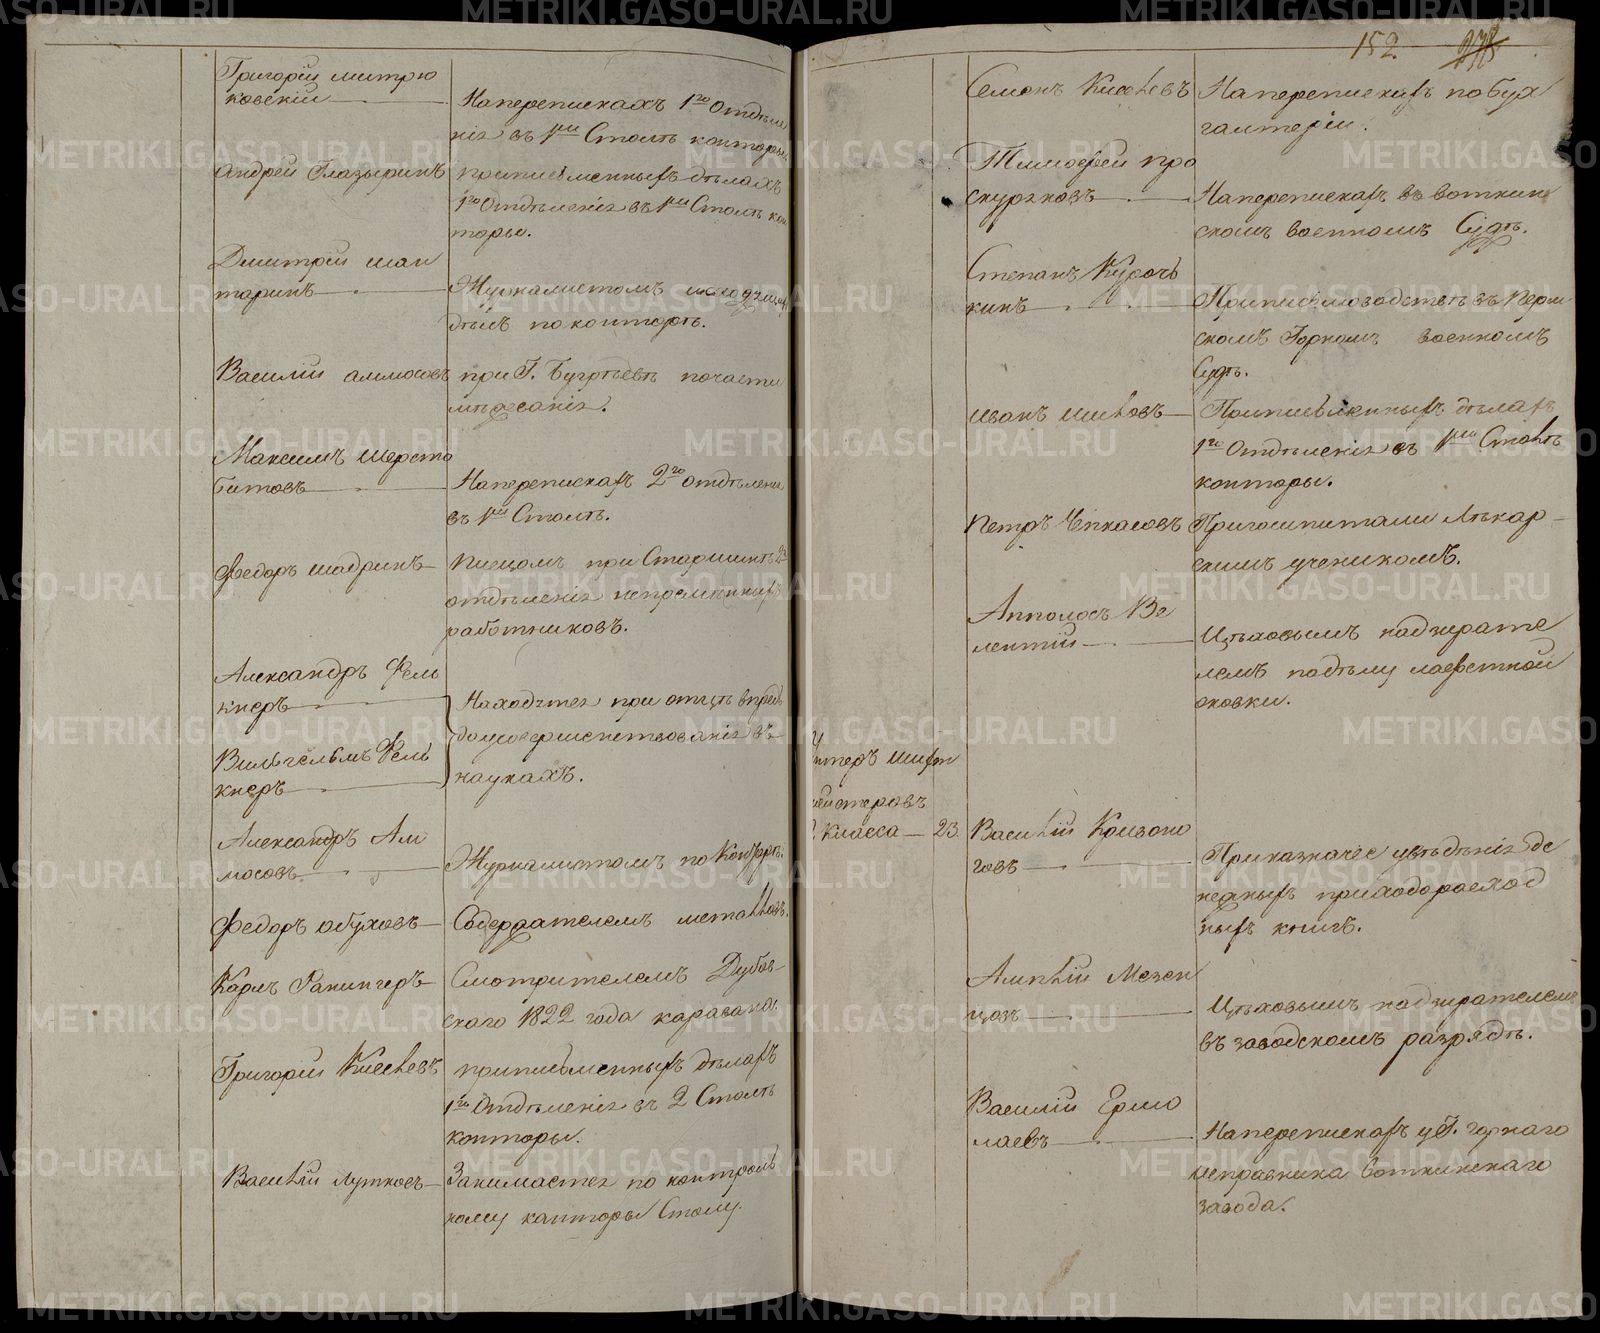 Григорій митрю
ковскій
На перепискахъ 1го Отдѣле
нія въ 1мъ Столѣ конторы.
Андрей Глазыринъ
при письменныхъ дѣлахъ
1го Отдѣленія въ 1мъ Столѣ кон
торы.
Дмитрій шан
таринъ
Журналистомъ
дѣлъ по конторѣ.
Василій аммосовъ
при Г. Бугрѣевѣ по части
межеванія.
Максимъ шерсто
битовъ
На перепискахъ 2го отдѣленія
въ 1мъ Столѣ.
Федоръ шадринъ
писцомъ при Старшинѣ 2го
отдѣленія непремѣнныхъ
работниковъ.
Александръ Фель
кнеръ
Вильгельмъ Фель
кнеръ
Находятся при отцѣ впредь
до усовершенствованія въ
наукахъ.
Александръ Ам
мосовъ
Журналистомъ по Конторѣ.
Федоръ обуховъ
Содержателемъ металловъ.
Карлъ Фанингеръ
Смотрителемъ Дубов
скаго 1822 года каравана.
Григорій Киселевъ
при письменныхъ дѣлахъ
1го Отдѣленія въ 2 Столѣ
конторы.
Василій лутковъ
Занимается по контроль
ному конторы Столу.
152.
Семенъ Киселевъ
На перепискахъ по бух
галтеріи.
Тимофей про
скуряковъ
На перепискахъ въ воткин
скомъ военномъ Судѣ.
Степанъ Кудоч
кинъ
При письмоводствѣ въ Перм
скомъ Горномъ военномъ
Судѣ.
иванъ шиловъ
При письменныхъ дѣлахъ
1го Отдѣленія въ 1мъ Столѣ
конторы.
Петръ Чепкасовъ
При госпитали Лѣкар
скимъ ученикомъ.
Апполосъ Ве
лентій
Цѣховымъ надзирате
лемъ по дѣлу лафетной
оковки.
унтеръ шихт
мейстеровъ
класса — 23.
Василій Кривоно
говъ
При казначеѣ у веденія де
нежныхъ приходорасход
ныхъ книгъ.
Алипій Мезен
цовъ
Цѣховымъ надзирателемъ
въ заводскомъ разрядѣ.
Василій Ермо
лаевъ
На перепискахъ у Г. горнаго
исправника воткинскаго
завода.
METRIKI.GASO-URAL.RU